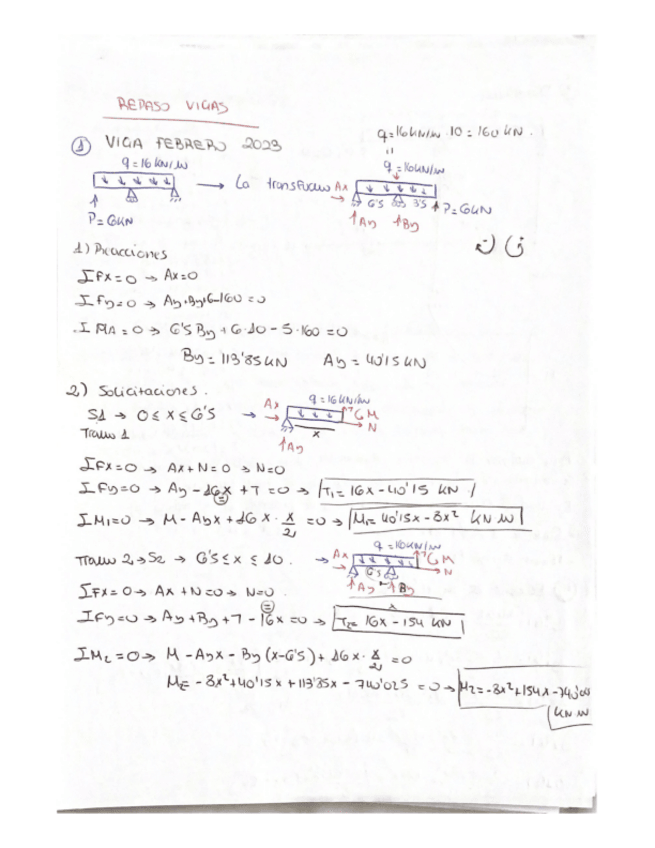 REPASO VIGAS
q=16kN/m · 10 = 160 kN.
① VIGA FEBRERO 2023
q=16 kN/m
P=6kN
→ La transformo
Ax
q=16kN/m
6'5
3'5
P=6kN
Ay
By
1) Reacciones
ΣFx=0 → Ax=0
ΣFy=0 → Ay+By+6-160=0
ΣMA=0 → 6'5 By + 6·10 - 5·160=0
By= 113'85 kN Ay= 40'15 kN
2) Solicitaciones.
S1 → 0 ≤ x ≤ 6'5
Tramo 1
Ax
q=16kN/m
M
N
x
Ay
ΣFx=0 → Ax+N=0 → N=0
ΣFy=0 → Ay - 16x + T =0 → T1= 16x-40'15 kN
ΣM1=0 → M - Ayx + 16x · x/2 =0 → M1= 40'15x - 8x² kN m
Tramo 2 → S2 → 6'5 ≤ x ≤ 10.
Ax
q=16kN/m
M
N
6'5
Ay
By
x
ΣFx=0 → Ax+N=0 → N=0.
ΣFy=0 → Ay + By + T - 16x =0 → T2= 16x - 154 kN
ΣM2=0 → M - Ayx - By (x-6'5) + 16x · x/2 =0
M= -8x²+40'15x+113'85x-740'025 =0 → M2= -8x²+154x-740'025
kN m